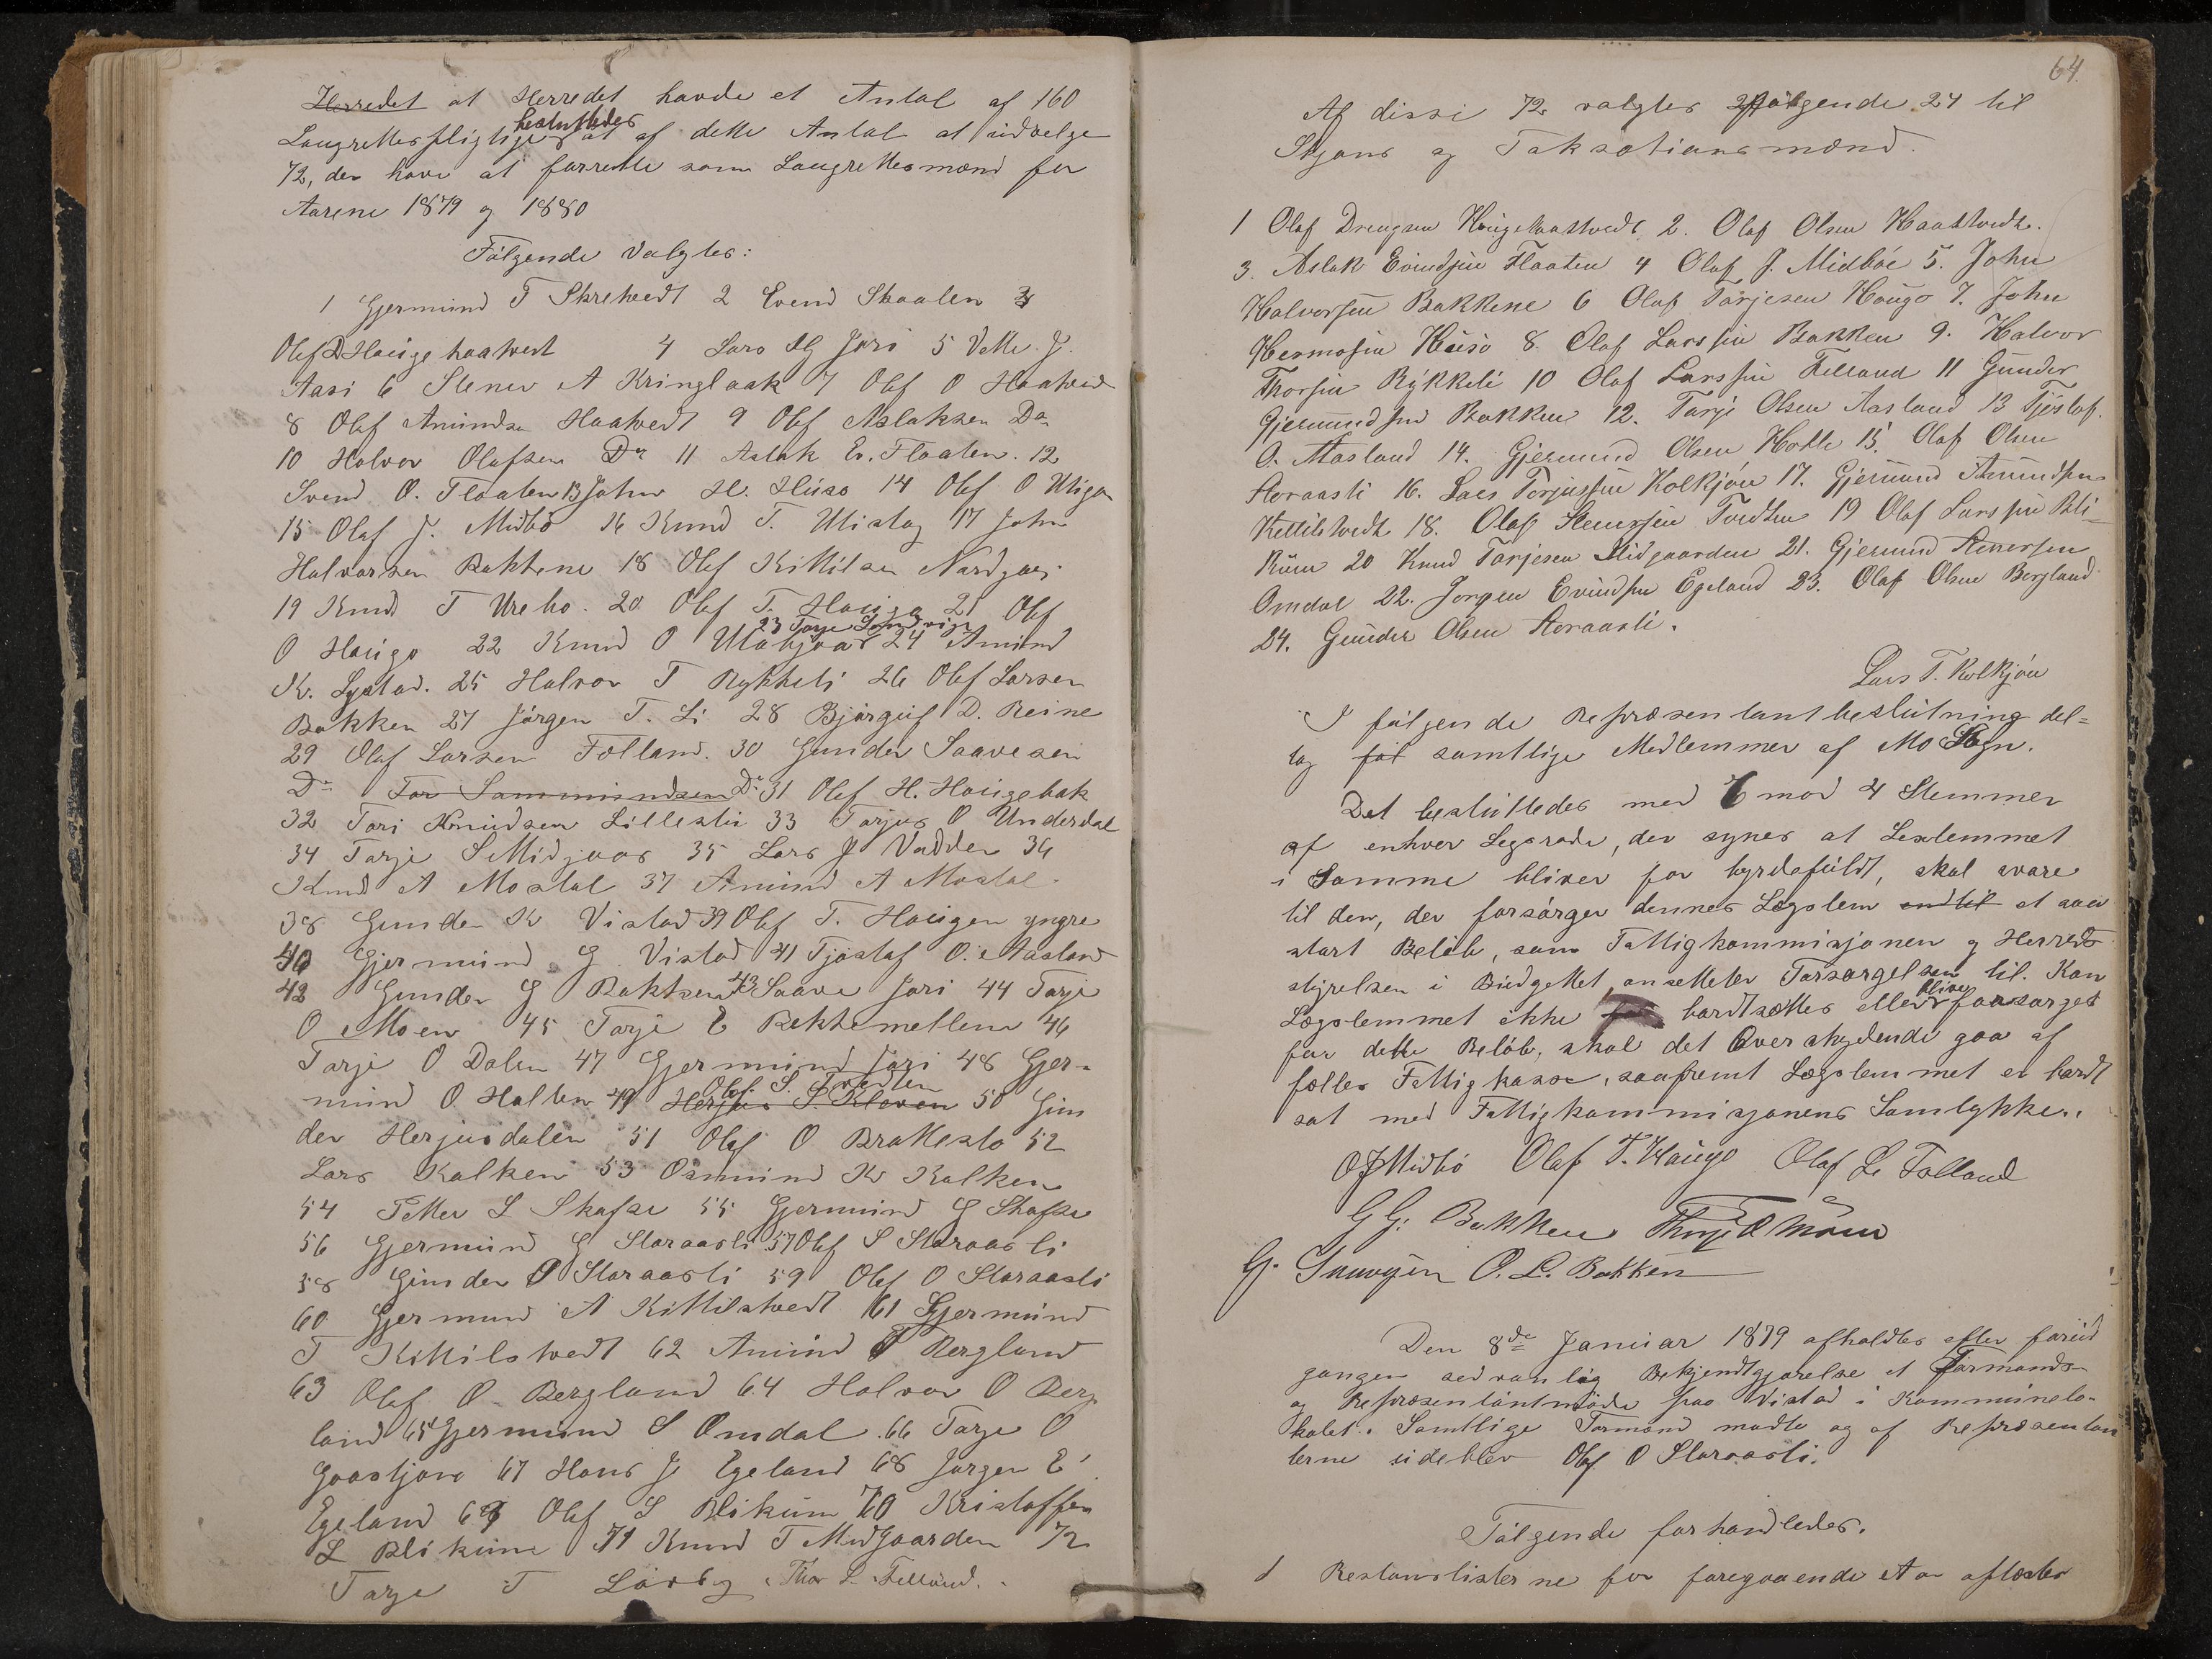 Herredet at Herredet havde et Antal af 160
besluttedes
Laugrettespligtige at af dette Antal at udvelge
72, der have at forrette som Laugrettesmænd for
Aarene 1879 og 1880
Følgende Valgtes:
1 Gjermund T Skretvedt 2 Evend Skaalen 3
Olef D Haugehaatvest 4 Lars H Juri 5 Vetle J.
Aasi 6 Stener A Kringlaak 7 Olef O Haatved
8 Olef Amundsen Haatvedt 9 Olef Aslaksen Do
10 Halvor Olafsen Do 11 Aslak Ev. Flaaten. 12
Svend O. Flaaten 13 John H. Huso 14 Olef O Utigar
15 Olaf J. Midbö 16 Knud T. Ulistog 17 John
Halvorsen Bakkene 18 Olef Kittilsen Nordgar
19 Knud T Urebø. 20 Olef T. Haugo 21 Olef
23 Tarje
O Haugo 22 Knud O 24 Amund
K. Systad. 25 Halvor T Rykkeli 26 Olef Larsen
Bakken 27 Jørgen T. Li 28 Bjørguf D. Reine
29 Olaf Larsen Folland. 30 Gunder Saavesen
Do Tor Sammundsen Do 31 Olef H. Haugebak
32 Tari Knudsen Lillestu 33 Tarjus O Underdal
34 Tarje S Midjaar 35 Lars J Vadder 36
Knud A Mostal 37 Amund A Mostal.
38 Gunder K Vistad 39 Olef T. Haugen yngre
40 Gjermund G. Vistad 41 Tjøstaf O. Aasland
42 Gunder G Bakken 43 Saave Jori 44 Tarje
O Moen 45 Tarje E Bekkemellem 46
Tarje O Dalen 47 Gjermund Jori 48 Gjer-
Olef S. Tvedten
mund O. Holten 49 Herjus S. Kleven 50 Gun
der Herjusdalen 51 Olaf O Brattestø 52
Lars Kalken 53 Osmund K Kalken
54 Petter L Skafse 55 Gjermund G Skafse
56 Gjermund G Storaasli 57 Olef S Storaasli
58 Gunder O Storaasli 59 Olef O Storaasli
60 Gjermund A Kittilstvedt 61 Gjermund
T Kittilstvedt 62 Amund T Bergland
63 Olef O Bergland 64 Halvor O Berg
land 65 Gjermund S Omdal. 66 Tarje O
Gaastjøno 67 Hans J. Egeland 68 Jørgen E
Egeland 69 Olef L Blikum 70 Kristoffer
L Blikum 71 Knud T Midgaarden 72
Tarje T Lösby Thor L. Felland.
64.
Af disse 72 valgtes følgende 24 til
Skjøns og Taksationsmænd.
1 Olaf Drengsen Haugehaatvedt 2. Olaf Olsen Haatvedt.
3. Aslak Evindsen Flaaten 4 Olaf J. Midböe 5. John
Halvorsen Bakkene 6 Olaf Tarjesen Haugo 7. John
Hermosen Huso 8. Olaf Larssen Bakken 9. Halvor
Thorsen Rykkeli 10 Olaf Larssen Felland 11 Gunder
Gjermundsen Bakken 12. Tarje Olsen Aasland 13 Tjøstof.
O. Aasland 14. Gjermund Olsen Holte 15. Olaf Olsen
Storaasli 16. Lars Torjussen Kolkjøn 17. Gjermund Amundsen
Kittilstvedt 18. Olaf Stenersen Tvedten 19 Olaf Larssen Bli-
kum 20 Knud Tarjesen Midgaarden 21. Gjermund Stenersen
Omdal 22. Jørgen Evindsen Egeland 23. Olaf Olsen Bergland
24. Gunder Olsen Storaasli.
Lars T. Kolkjøn
I følgende Repræsentantbeslutning del-
tog samtlige Medlemmer af Mo Sogn.
Det besluttedes med 6 mod 4 Stemmer
at enhver Legsrode, der synes at Leslemmet
i Samme bliver for byrdefuldt, skal svare
til den, der forsørger dennes Lægslem indtil et saa
stort Beløb, som Fattigkommisjonen og Herreds
styrelsen i Budgettet ansetter Forsørgelsen til. Kan
blive
Lægslemmet ikke bortsættes eller forsørget
for dette Beløb, skal det Overskydende gaa af
fælles Fattigkasse, saafremt Lægslemmet er bort
sat med Fattigkommisjonens Samtykke.
O J Midbö Olaf T. Haugo Olaf L. Folland
G G. Bakken
G. O. L. Bakken
Den 8de Januar 1879 afholdtes efter forud
gangen sedvanlig Bekjendtgjørelse et Formands-
og Repræsentantmøde paa Vistad i Kommunelo-
kalet. Samtlige Formænd mødte og af Repræsentan
terne udeblev Olef O Storaasli.
Følgende forhandledes.
1 Restanslisterne for foregaaende Aar oplæstes